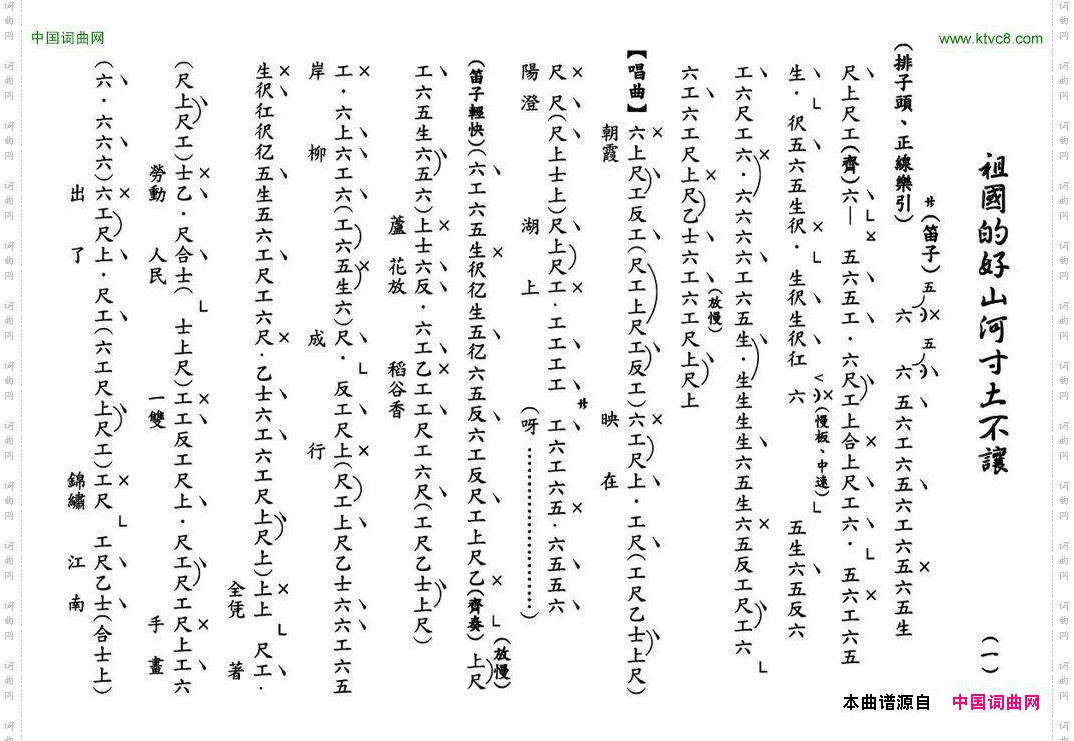 中国词曲网
www.ktvc8.com
祖國的好山河寸土不讓
(一)
(排子頭、正線樂引)
サ(笛子)五六五六 五六工六五六工六五六五生
尺上尺工(齊)六— 五六五工·六尺工上合上尺工六·五六工六五
生·伬五六五生伬·生伬生伬仜 六(慢板、中速)五生六五反六
工六尺工六·六六六工六五生·生生生生六五生六五反工尺工六
六工六工尺上尺乙士六工六工尺上尺上
(放慢)
【唱曲】六上尺工反工(尺工上尺工反工)六工尺上·工尺(工尺乙士上尺)
朝霞 映在
尺尺(尺上士上)尺上尺工·工工工サ工六工六五·六五五六
陽澄 湖上 (呀…………)
(笛子輕快)(六工六五生伬亿生五亿六五反六工反尺工上尺乙(齊奏)上尺
(放慢)
工六五生六五六)上士六反·六工乙工工尺工六尺(工尺乙士上尺)
蘆花放 稻谷香
工·六上六工六(工六五生六)尺·反工尺上(尺工上尺乙士六六工六五
岸柳 成行
生伬仜伬亿五生五六工尺工六尺·乙士六工六工尺上尺上)上上尺工·
全凭著
(尺上尺工)士乙·尺合士(士上尺)工工反工尺上·尺工尺工尺上工六
勞動人民 一雙 手畫
(六·六六六)六工尺上·尺工(六工尺上尺工)工尺工尺乙士(合士上)
出了 錦繡江南
本曲谱源自 中国词曲网